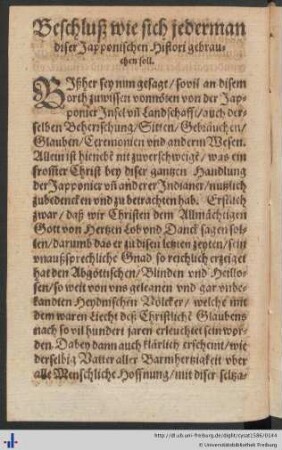 Beschluß wie sich jederman
diser Japponischen Histori gebrau-
chen soll.
Bißher sey nun gesagt / sovil an disem
orth zuwissen vonnöten von der Jap-
ponier Insel vñ Landschafft / auch der-
selben Beherschung / Sitten / Gebräuchen /
Glauben / Ceremonien vnd anderm Wesen.
Allein ist hienebē nit zuverschweigē / was ein
frommer Christ bey diser gantzen Handlung
der Japponier vñ anderer Indianer / nutzlich
zubedencken vnd zu betrachten hab. Erstlich
zwar / daß wir Christen dem Allmächtigen
Gott von Hertzen Lob vnd Danck sagen sol-
len / darumb das er zu disen letzten zeyten / sein
vnaußsprechliche Gnad so reichlich erzeiget
hat den Abgöttischen / Blinden vnd Heillo-
sen / so weit von vns gelegnen vnd gar vnbe-
kandten Heydnischen Völcker / welche mit
dem waren Liecht deß Christlichē Glaubens
nach so vil hundert jaren erleuchtet sein wor-
den. Dabey dann auch klärlich erscheint / wie
derselbig Vatter aller Barmhertzigkeit vber
alle Menschliche Hoffnung / mit diser seltza-
http://dl.ub.uni-freiburg.de/diglit/cysat1586/0144
© Universitätsbibliothek Freiburg